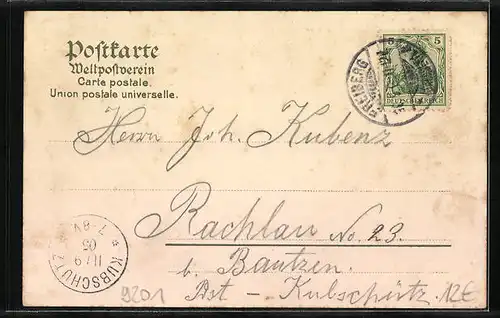 Postkarte
Weltpostverein
Carte postale.
Union postale universelle.
5
FREIBERG
DEUTSCHES REICH
Herrn Joh. Kubenz
Rachlau No. 23.
b. Bautzen.
Post – Kubschütz.
KUBSCHÜTZ
11/9
05
7-8V
9201
12€